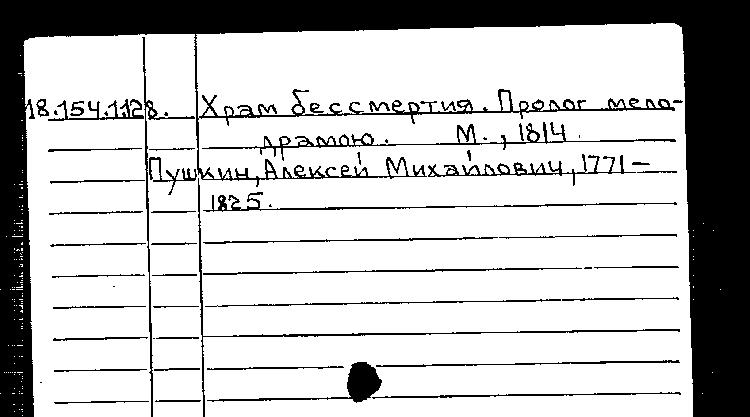 18.154.1.128. Храм бессмертия. Пролог мело-
драмою. М., 1814.
Пушкин, Алексей Михайлович, 1771-
1825.